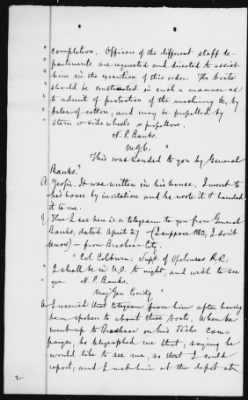 completion. Officers of the different staff de-
partments are requested and directed to assist
him in the execution of this order. The boats
should be constructed in such a manner as
to admit of protection of the machinery &c, by
bales of cotton, and may be propelled by
stern or side wheels or propellers.
N. P. Banks
M.G.C. "
This was handed to you by General
Banks?
A Yes sir. It was written in his house. I went to
his house by invitation and he wrote it & handed
it to me.
Q Then I see here is a telegram to you from General
Banks, dated April 27 (I suppose 1863, I don't
know) - from Brashear City.
" Col. Coburn: Supt of Opelousas R.R.
I shall be in N.O. to night, and wish to see
you. N. P. Banks.
Maj Gen Comdg "
A I received that telegram from him after having
been spoken to about these boats. When he
went up to Brashear on his Têche cam-
paign, he telegraphed me that, saying he
would like to see me, so that I could
report, and I met him at the depot at
2